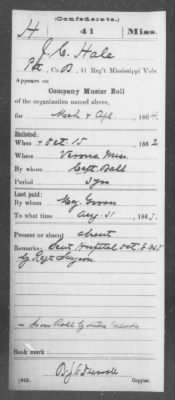 (Confederate.)
H 41 Miss.
J. C. Hale
Pvt, Co. B, 41 Reg't Mississippi Vols.
Appears on
Company Muster Roll
of the organization named above,
for Mch & Apl, 1864
Enlisted:
When Oct 15, 1862
Where Verona Miss.
By whom Capt. Ball
Period 3 yrs
Last paid:
By whom Maj.
To what time Aug. 31, 1863.
Present or absent absent
Remarks: Sent Hospital Oct.
by Regt Surgeon
Book mark:
Copyist.